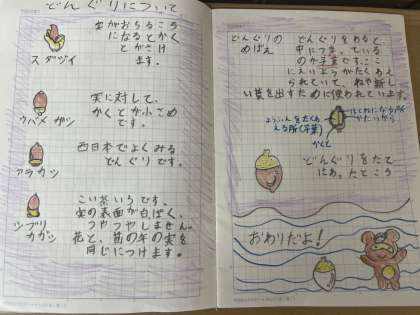 どんぐりについて
実がおちるころ
になるとかく
とがさけ
ます。
スダジイ
実に対して、
かくとが小さめ
です。
ウバメガシ
西日本でよくみる
どんぐりです。
アラカシ
こい茶いろです。
実の表面が白ぱく、
つやつやしません。
花と、前の年の実を
同じにつけます。
ツブリ
カガシ
どんぐりの
めばえ
どんぐりをわると
中につまっている
のが子葉です。ここ
にえいようがたくわえ
られていて、ねや新し
い葉を出すために使われています。
ようぶんをたくわ
える所(子葉)
かくと
どんぐりをたて
にわったところ
おわりだよ!